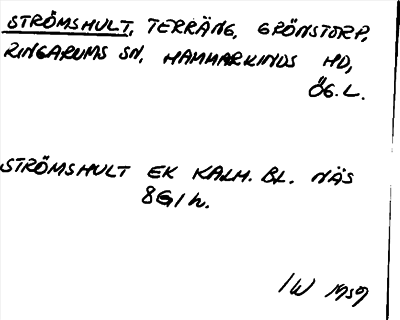 STRÖMSHULT, TERRÄNG, GRÖNSTORP,
RINGARUMS SN, HAMMARKINDS HD,
ÖG. L.
STRÖMSHULT EK KALM. BL. NÄS
8G1h.
IW